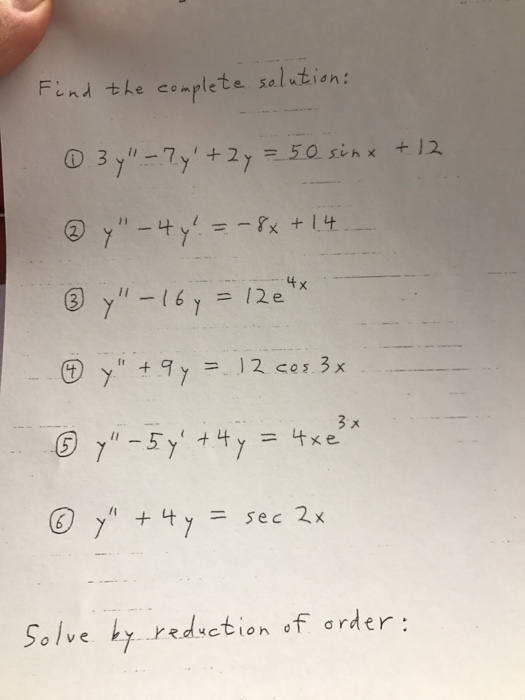 Find the complete solution:
① 3y" - 7y' + 2y = 50 sin x + 12
② y" - 4y' = -8x + 14
③ y" - 16y = 12e^4x
④ y" + 9y = 12 cos 3x
⑤ y" - 5y' + 4y = 4xe^3x
⑥ y" + 4y = sec 2x
Solve by reduction of order: